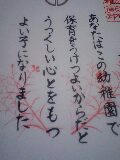 あなたはこの幼稚園で
保育をうけつよいからだと
うつくしい心とをもつ
よい子になりました